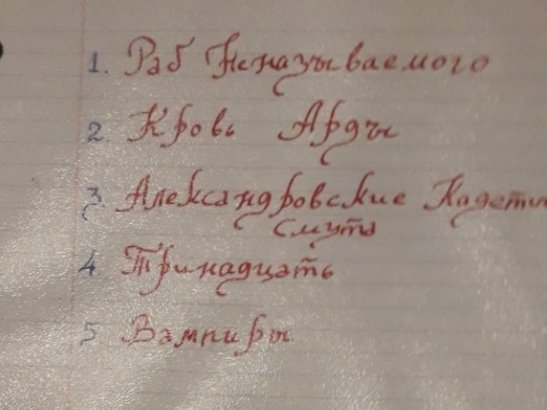 1. Раб Неназываемого
2 Кровь Арды
3. Александровские Кадеты
смута
4. Тринадцать
5 Вампиры